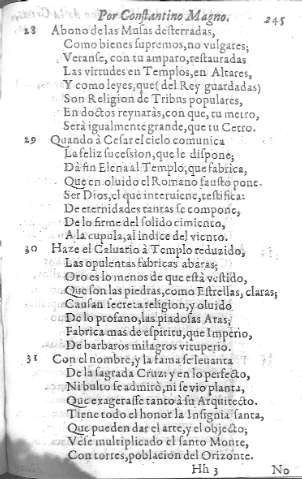 Por Constantino Magno. 245
28 Abono de las Musas desterradas,
Como bienes supremos, no vulgares;
Veranse, con tu amparo, restauradas
Las virtudes en Templos, en Altares,
Y como leyes, que (del Rey guardadas)
Son Religion de Tribus populares,
En doctos reynaràs, con que, tu metro,
Serà igualmente grande, que tu Cetro.
29 Quando à Cesar el cielo comunica
La feliz sucession, que le dispone;
Dà fin Elena al Templo, que fabrica,
Que en oluido el Romano fausto pone.
Ser Dios, el que interuiene, testifica:
De eternidades tantas se compone,
De lo firme del solido cimiento,
A la cupola, al indice del viento.
30 Haze el Caluario à Templo reduzido,
Las opulentas fabricas abaras;
Oro es lo menos de que està vestido,
Que son las piedras, como Estrellas, claras;
Causan secreta religion, y oluido
De lo profano, las piadosas Aras,
Fabrica mas de espiritu, que Imperio,
De barbaros milagros vituperio.
31 Con el nombre, y la fama se leuanta
De la sagrada Cruz: y en lo perfecto,
Ni bulto se admirò, ni se vio planta,
Que exagerasse tanto à su Arquitecto.
Tiene todo el honor la Insignia santa,
Que pueden dar el arte, y el objecto;
Vese multiplicado el santo Monte,
Con torres, poblacion del Orizonte.
Hh 3 No